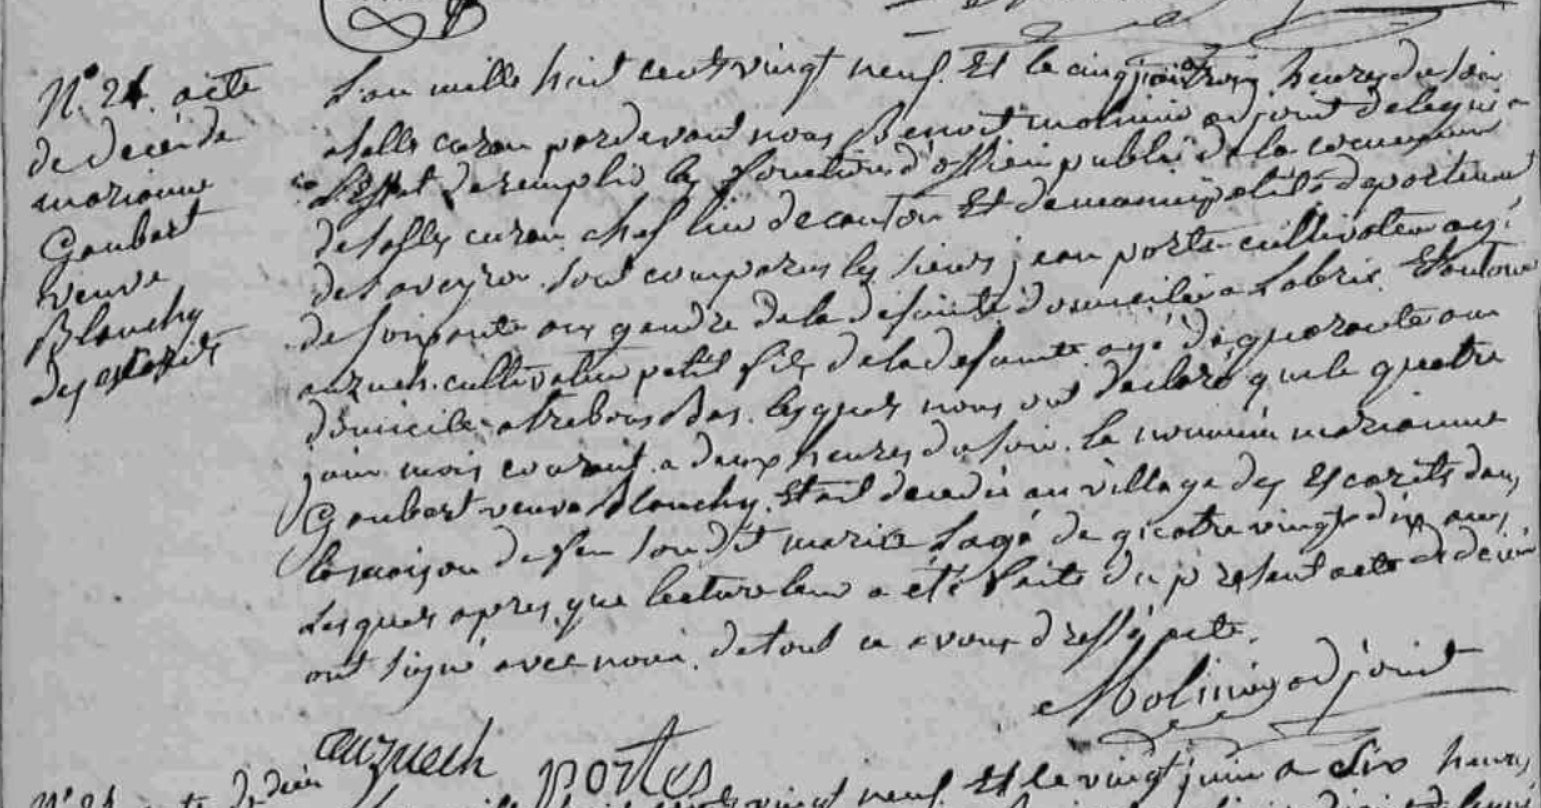 N° 24. acte
de décés de
marianne
Goubert
veuve
Blanchy
des escorits
L'an mille huit cents vingt neuf. Et le cinq juin a trois heures du soir
a salles curan par devant nous Benoit molinié adjoint delegué a
L'Effet de remplir les fonctions d'officier public de la commune
de salles curan chef lieu de canton Et de municipalité departement
de L'aveyron sont comparus les sieurs jean portes cultivateur agé
de soixante ans gendre de la defainte domicilié a Labrix Et antoine
auzuech cultivateur petit fils de la defainte agé de quarante ans
domicile a trebons Bas. lesquels nous ont declaré que le quatre
juin mois courant a deux heures du soir. La nommée marianne
Goubert veuve Blanchy. Etait decedée au village des Escorits dans
la maison de feu son dit marie L'agé de quatre vingt dix ans.
Lesquels apres que lecture leur a été faite du présent acte de décés
ont signé avec nous. de tout ce avons dressé acte.
Molinié adjoint
auzuech portes
N° 25 acte de décés
vingt neuf Et le vingt juin a six heures